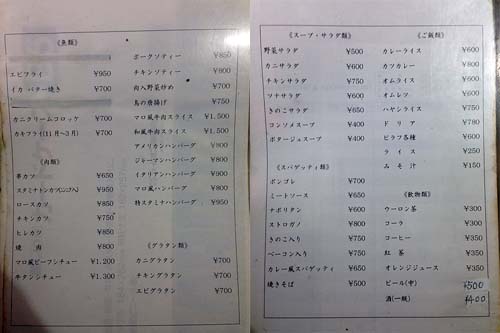 《魚類》
エビフライ ¥950
イカ バター焼き ¥700
カニクリームコロッケ ¥700
カキフライ(11月〜3月) ¥700
《肉類》
串カツ ¥650
スタミナトンカツ(ニンニク入) ¥950
ロースカツ ¥850
チキンカツ ¥750
ヒレカツ ¥850
焼 肉 ¥800
マロ風ビーフシチュー ¥1.200
牛タンシチュー ¥1.300
ポークソティー ¥850
チキンソティー ¥900
肉入野菜炒め ¥700
鳥の唐揚げ ¥750
マロ風牛肉スライス ¥1.500
和風牛肉スライス ¥1.500
アメリカンハンバーグ ¥800
ジャーマンハンバーグ ¥800
イタリアンハンバーグ ¥900
マロ風ハンバーグ ¥800
特スタミナハンバーグ ¥950
《グラタン類》
カニグラタン ¥700
チキングラタン ¥700
エビグラタン ¥700
《スープ・サラダ類》
野菜サラダ ¥500
カニサラダ ¥600
チキンサラダ ¥750
ツナサラダ ¥600
きのこサラダ ¥650
コンソメスープ ¥400
ポタージュスープ ¥400
《スパゲッティ類》
ボンゴレ ¥700
ミートソース ¥650
ナポリタン ¥600
ストロガノ ¥800
きのこ入り ¥750
ベーコン入り ¥750
カレー風スパゲティ ¥650
焼きそば ¥500
《ご飯類》
カレーライス ¥600
カツカレー ¥800
オムライス ¥600
オムレツ ¥600
ハヤシライス ¥750
ドリア ¥780
ピラフ各種 ¥600
ライス ¥250
みそ汁 ¥150
《飲物類》
ウーロン茶 ¥300
コーラ ¥300
コーヒー ¥350
紅 茶 ¥350
オレンジジュース ¥350
ビール(中) ¥500
酒(一級) ¥400